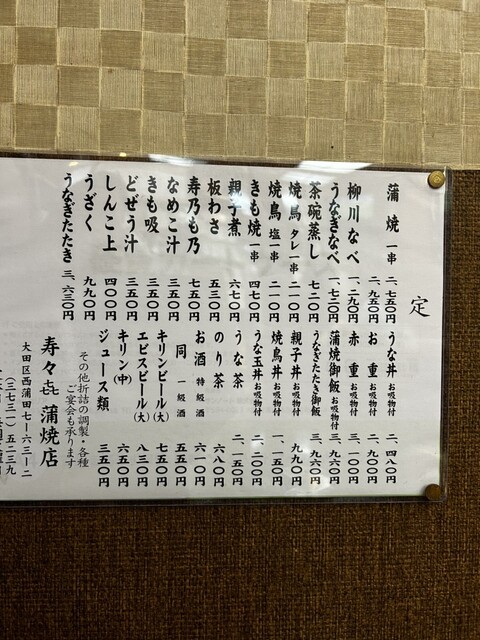 定
蒲焼 一串 二、七五〇円
二、九五〇円
柳川なべ 一、二九〇円
うなぎなべ 一、七二〇円
茶碗蒸し 七二〇円
焼鳥 タレ一串 二一〇円
焼鳥 塩一串 二一〇円
きも焼 一串 四七〇円
親子煮 六七〇円
板わさ 五三〇円
寿乃も乃 七五〇円
なめこ汁 三五〇円
きも吸 三五〇円
どぜう汁 三五〇円
しんこ 上 四〇〇円
うざく 九九〇円
うなぎたたき 三、六三〇円
うな丼 お吸物付 二、四八〇円
お重 お吸物付 三、一〇〇円
赤重 お吸物付 三、九〇〇円
蒲焼御飯 お吸物付 三、九六〇円
うなぎたたき御飯 三、九六〇円
親子丼 お吸物付 九九〇円
焼鳥丼 お吸物付 一、一五〇円
うな玉丼 お吸物付 二、二〇〇円
うな茶 二、一五〇円
のり茶 六八〇円
お酒 特級酒 六一〇円
同 一級酒 五五〇円
キリンビール(大) 七五〇円
エビスビール(大) 八三〇円
キリン(中) 六五〇円
ジュース類 三五〇円
その他折詰の調製・各種
ご宴会も承ります
寿々㐂 蒲焼店
大田区西蒲田七ー六三ー二
(三七三一)五二三九